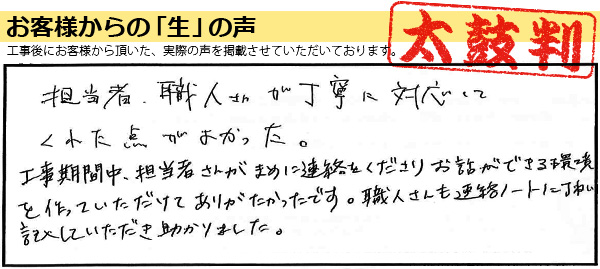 お客様からの「生」の声
太鼓判
工事後にお客様から頂いた、実際の声を掲載させていただいております。
担当者、職人さんが丁寧に対応して
くれた点がよかった。
工事期間中、担当者さんがまめに連絡をくださりお話ができる環境
を作っていただけてありがたかったです。職人さんも連絡ノートに丁ねい
記入していただき助かりました。